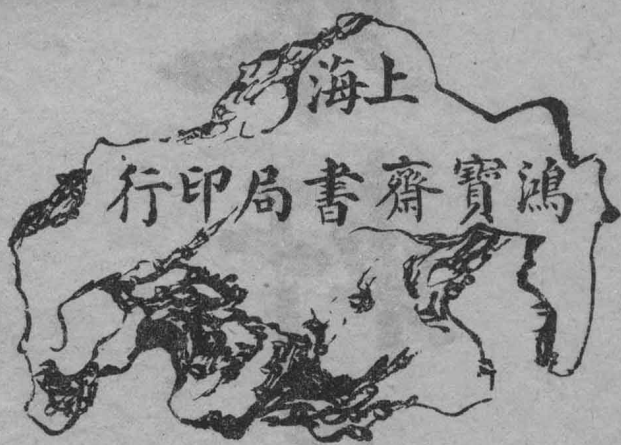 上海
鴻寶齋書局印行